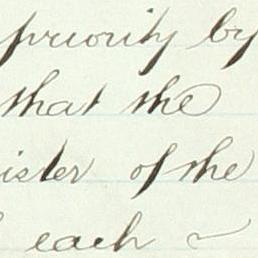 priority by
that the
ister of the
each